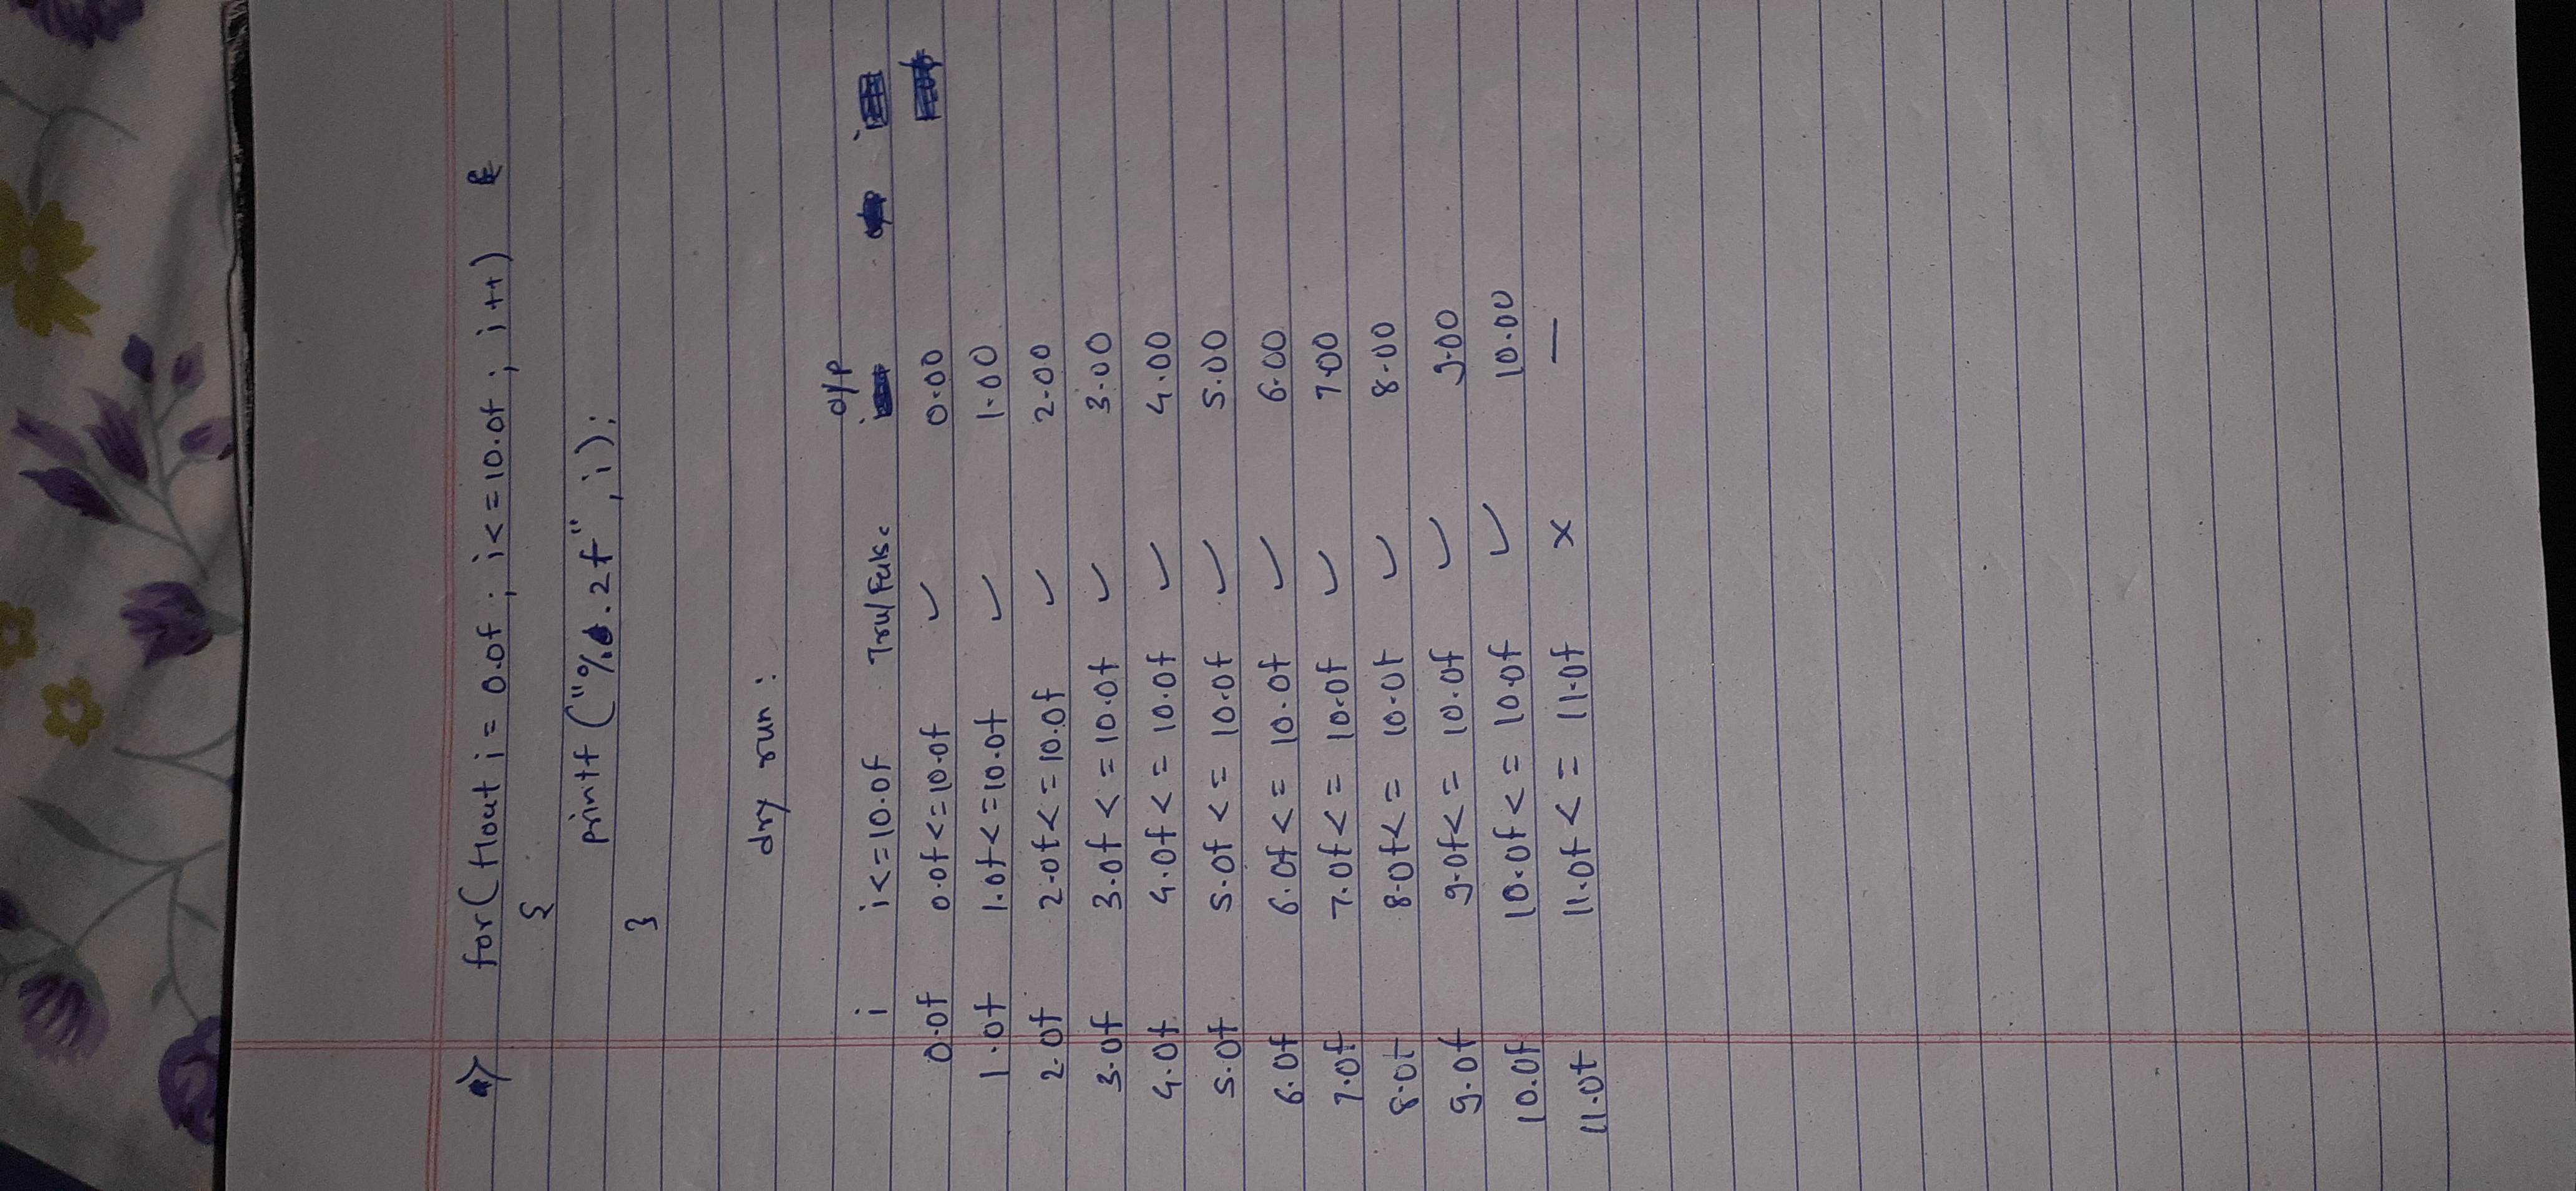 for(float i = 0.0f; i<=10.0f; i++) {
{
printf("%.2f", i);
}
dry run:
o/p
i i<=10.0f Tru/False
0.0f 0.0f<=10.0f ✓ 0.00
1.0f 1.0f<=10.0f ✓ 1.00
2.0f 2.0f<=10.0f ✓ 2.00
3.0f 3.0f<=10.0f ✓ 3.00
4.0f 4.0f<=10.0f ✓ 4.00
5.0f 5.0f<=10.0f ✓ 5.00
6.0f 6.0f<=10.0f ✓ 6.00
7.0f 7.0f<=10.0f ✓ 7.00
8.0f 8.0f<=10.0f ✓ 8.00
9.0f 9.0f<=10.0f ✓ 9.00
10.0f 10.0f<=10.0f ✓ 10.00
11.0f 11.0f<=11.0f x —